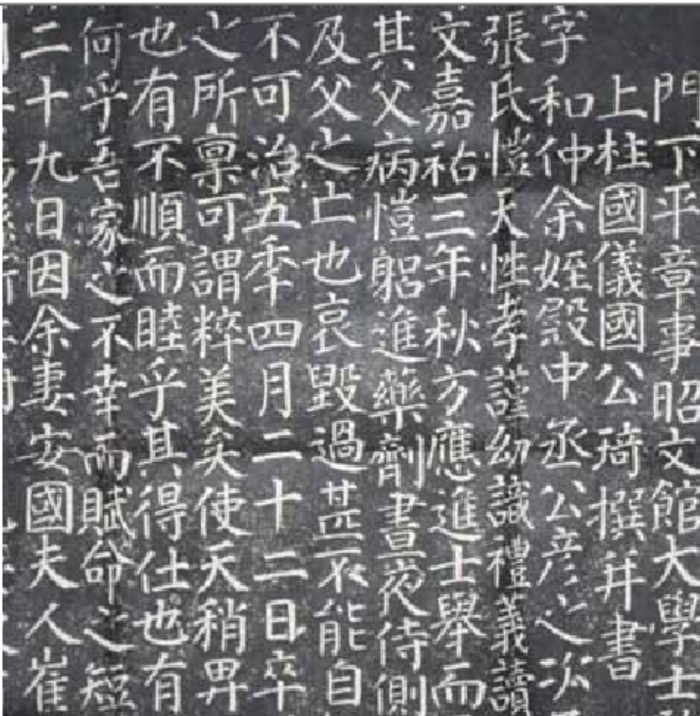 門下平章事昭文館大學士
上柱國儀國公琦撰并書
字和仲余姪殿中丞公彦之次
張氏愷天性孝謹幼識禮義讀
文嘉祐三年秋方應進士舉而
其父病愷躳進藥劑晝夜侍側
及父之亡也哀毀過甚不能自
不可治五秊四月二十二日卒
之所稟可謂粹美矣使天稍畀
也有不順而睦乎其得仕也有
何乎吾家之不幸而賦命之短
二十九日因余妻安國夫人崔